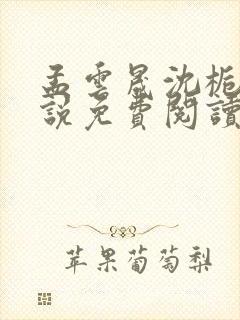 孟雲晟沈栀
說免費閱讀
苹果葡萄梨